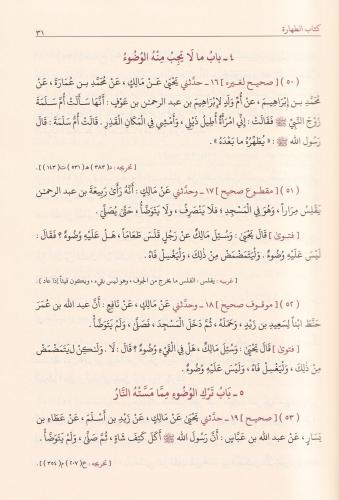 كتاب الطهارة
٣١
٤ ـ بابُ ما لا يَجِبُ مِنْهُ الوُضُوءُ
( ٥٠ ) [ صحيح لغيره ] ١٦ ـ حدثني يَحْيَىٰ عَنْ مَالِكٍ ، عَنْ مُحَمَّدِ بنِ عُمَارَةَ ، عَنْ
مُحَمَّدِ بنِ إِبْرَاهِيمَ ، عَنْ أُمِّ وَلَدٍ لإِبْرَاهِيمَ بنِ عبد الرحمٰنِ بنِ عَوْفٍ : أَنَّهَا سَأَلَتْ أُمَّ سَلَمَةَ
زَوْجَ النَّبِيِّ ﷺ فَقَالَتْ : إِنِّي امْرَأَةٌ أُطِيلُ ذَيْلِي ، وَأَمْشِي فِي الْمَكَانِ القَذِرِ . قَالَتْ أُمُّ سَلَمَةَ : قَالَ
رَسول الله ﷺ : « يُطَهِّرُهُ مَا بَعْدَهُ » .
[ تخريجه : د( ٣٨٣ ) هـ( ٥٣١ ) ت( ١٤٣ ) ] .
( ٥١ ) [ مقطوع صحيح ] ١٧ ـ وحدثني عَنْ مَالِكٍ : أَنَّهُ رَأَىٰ رَبِيعَةَ بن عبد الرحمٰن
يَقْلِسُ مِرَاراً ، وَهُوَ فِي الْمَسْجِدِ ؛ فَلاَ يَنْصَرِفُ ، وَلاَ يَتَوَضَّأُ ، حَتَّىٰ يُصَلِّيَ .
[ فتوىٰ ] قَالَ يَحْيَىٰ : وَسُئِلَ مَالِكٌ عَنْ رَجُلٍ قَلَسَ طَعَاماً ، هَلْ عَلَيْهِ وُضُوءٌ ؟ فَقَالَ :
لَيْسَ عَلَيْهِ وُضُوءٌ . وَلْيَتَمَضْمَضْ مِنْ ذٰلِكَ ، وَلْيَغْسِلْ فَاهُ .
[ غريبه : يقلس : القلس ما يخرج من الجوف ، وهو ليس بقيء ، ويكون قيئاً إذا عاد ] .
( ٥٢ ) [ موقوف صحيح ] ١٨ ـ وحدثني عَنْ مَالِكٍ ، عَنْ نَافِعٍ : أَنَّ عبد الله بن عُمَرَ
حَنَّطَ ابْناً لِسَعِيدِ بن زَيْدٍ ، وَحَمَلَهُ ، ثُمَّ دَخَلَ الْمَسْجِدَ ، فَصَلَّىٰ ، وَلَمْ يَتَوَضَّأْ .
[ فتوىٰ ] قَالَ يَحْيَىٰ : وَسُئِلَ مَالِكٌ ، هَلْ فِي الْقَيْءِ وُضُوءٌ ؟ قَالَ : لاَ . وَلٰكِنْ لِيَتَمَضْمَضْ
مِنْ ذٰلِكَ ، وَلْيَغْسِلْ فَاهُ ، وَلَيْسَ عَلَيْهِ وُضُوءٌ .
٥ ـ بَابُ تَرْكِ الوُضُوءِ مِمَّا مَسَّتْهُ النَّار
( ٥٣ ) [ صحيح ] ١٩ ـ حدثني يَحْيَىٰ عَنْ مَالِكٍ ، عَنْ زَيْدِ بن أَسْلَمَ ، عَنْ عَطَاءِ بن
يَسَارٍ ، عَنْ عبد الله بن عَبَّاسٍ : أَنَّ رَسول الله ﷺ أَكَلَ كَتِفَ شَاةٍ ، ثُمَّ صَلَّىٰ ، وَلَمْ يَتَوَضَّأْ .
[ تخريجه : خ( ٢٠٧ ) م( ٣٥٤ ) ] .